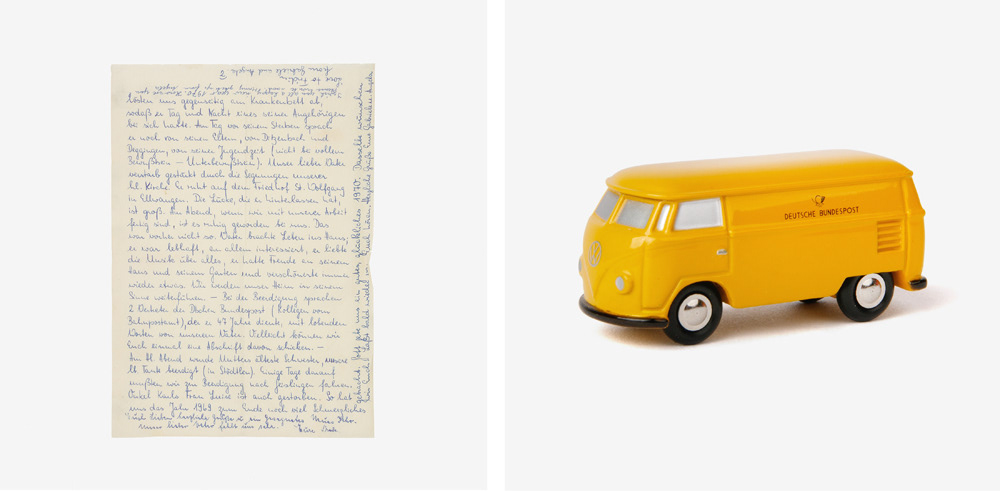 lösten uns gegenseitig am Krankenbett ab,
sodaß er Tag und Nacht eines seiner Angehörigen
bei sich hatte. Am Tag vor seinem Sterben sprach
er noch von seinen Eltern, von Ditzenbach und
Deggingen, von seiner Jugendzeit (nicht bei vollem
Bewußtsein — Unterbewußtsein). Unser lieber Vater
verstarb gestärkt durch die Segnungen unserer
hl. Kirche. Er ruht auf dem Friedhof St. Wolfgang
in Ellwangen. Die Lücke, die er hinterlassen hat,
ist groß. Am Abend, wenn wir mit unserer Arbeit
fertig sind, ist es ruhig geworden bei uns. Das
war vorher nicht so. Vater brachte Leben ins Haus,
er war lebhaft, an allem interessiert, er liebte
die Musik über alles, er hatte Freude an seinem
Haus und seinem Garten und verschönerte immer
wieder etwas. Wir werden unser Heim in seinem
Sinne weiterführen. — Bei der Beerdigung sprachen
2 Vertreter der Deutschen Bundespost (Kollegen vom
Bahnpostamt), der er 47 Jahre diente, mit lobenden
Worten von unserem Vater. Vielleicht können wir
Euch einmal eine Abschrift davon schicken. —
Am Hl. Abend wurde Mutters älteste Schwester, unsere
lb. Tante beerdigt (in Stödtlen). Einige Tage darauf
mußten wir zur Beerdigung nach Geislingen fahren.
Onkel Karls Frau Luise ist auch gestorben. So hat
uns das Jahr 1969 zum Ende noch viel Schmerzliches
gebracht. Gott gebe uns ein gutes, glückliches 1970. Dasselbe wünschen
wir Euch! Laßt bald wieder
3
love to
from Gabriele and Angela
DEUTSCHE BUNDESPOST